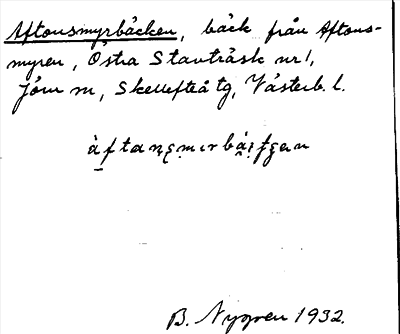 Aftonsmyrbäcken, bäck från Aftons-
myren, Östra Stavträsk nr 1,
Jörn sn, Skellefteå tg, Västerb. l.
B. Nygren 1932.